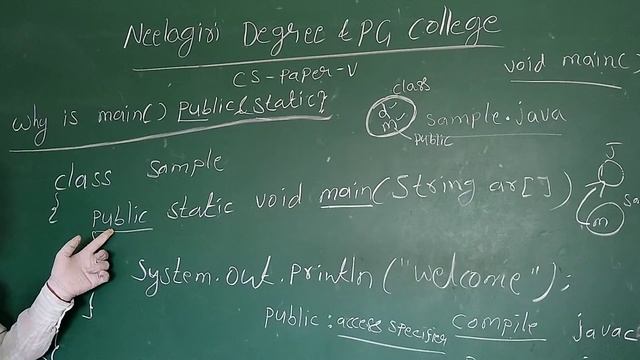 Neelagiri Degree & PG College
CS-Paper-V
void main()
why is main() public & static?
class
d
m
public
sample.java
class sample
{
public static void main(String ar[])
J
m
System.out.println("Welcome");
}
public : access specifier compile javac
{